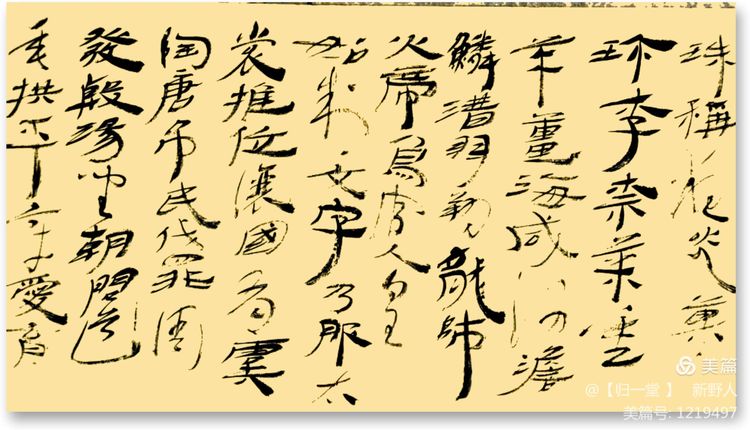 珠稱夜光菓
珍李柰菜重
芥薑海咸河淡
鱗潛羽翔龍師
火帝鳥官人皇
始制文字乃服衣
裳推位讓國有虞
陶唐吊民伐罪周
發殷湯坐朝問道
垂拱平章愛育
美篇
@【归一堂】 新野人
美篇号: 1219497